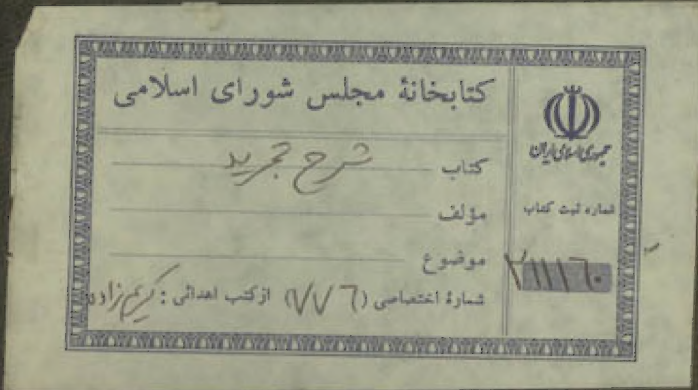 کتابخانهٔ مجلس شورای اسلامی
کتاب شرح تجرید
مؤلف
موضوع
شمارهٔ اختصاصی (۷۷۶) از کتب اهدائی : کریم زاده
جمهوری اسلامی ایران
شماره ثبت کتاب
۲۱۱۱۶۰